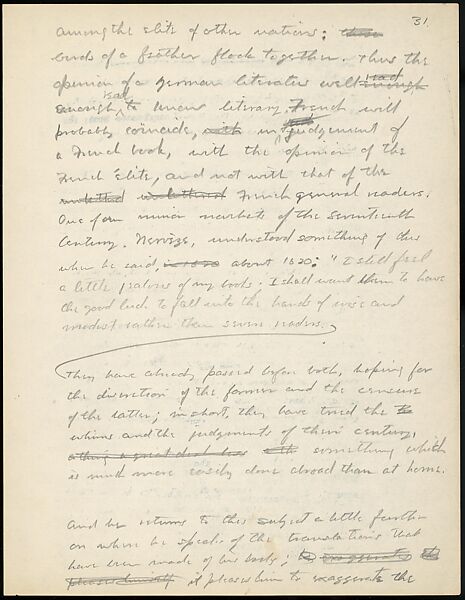 31.
among the elite of other nations: these
birds of a feather flock together. Thus the
opinion of a German literateur well read
enough read to know literary French will
probably coincide, with in his judgement of
a French book, with the opinion of the
French Elite, and not with that of the
unlettered French general readers.
One of our minor novelists of the seventeenth
Century, Nervèze, understood something of this
when he said, in 1620 about 1620: "I still feel
a little jealous of my books. I shall want them to have
the good luck to fall into the hands of wise and
modest rather than severe readers.
They have already passed before both, hoping for
the discretion of the former and the censure
of the latter; in short, they have tried the
whims and the judgments of their century,
a thing a great deal less something which
is much more easily done abroad than at home.
And he returns to this subject a little further
on when he speaks of the translations that
have been made of his books; exaggerate
pleased himself it pleases him to exaggerate the